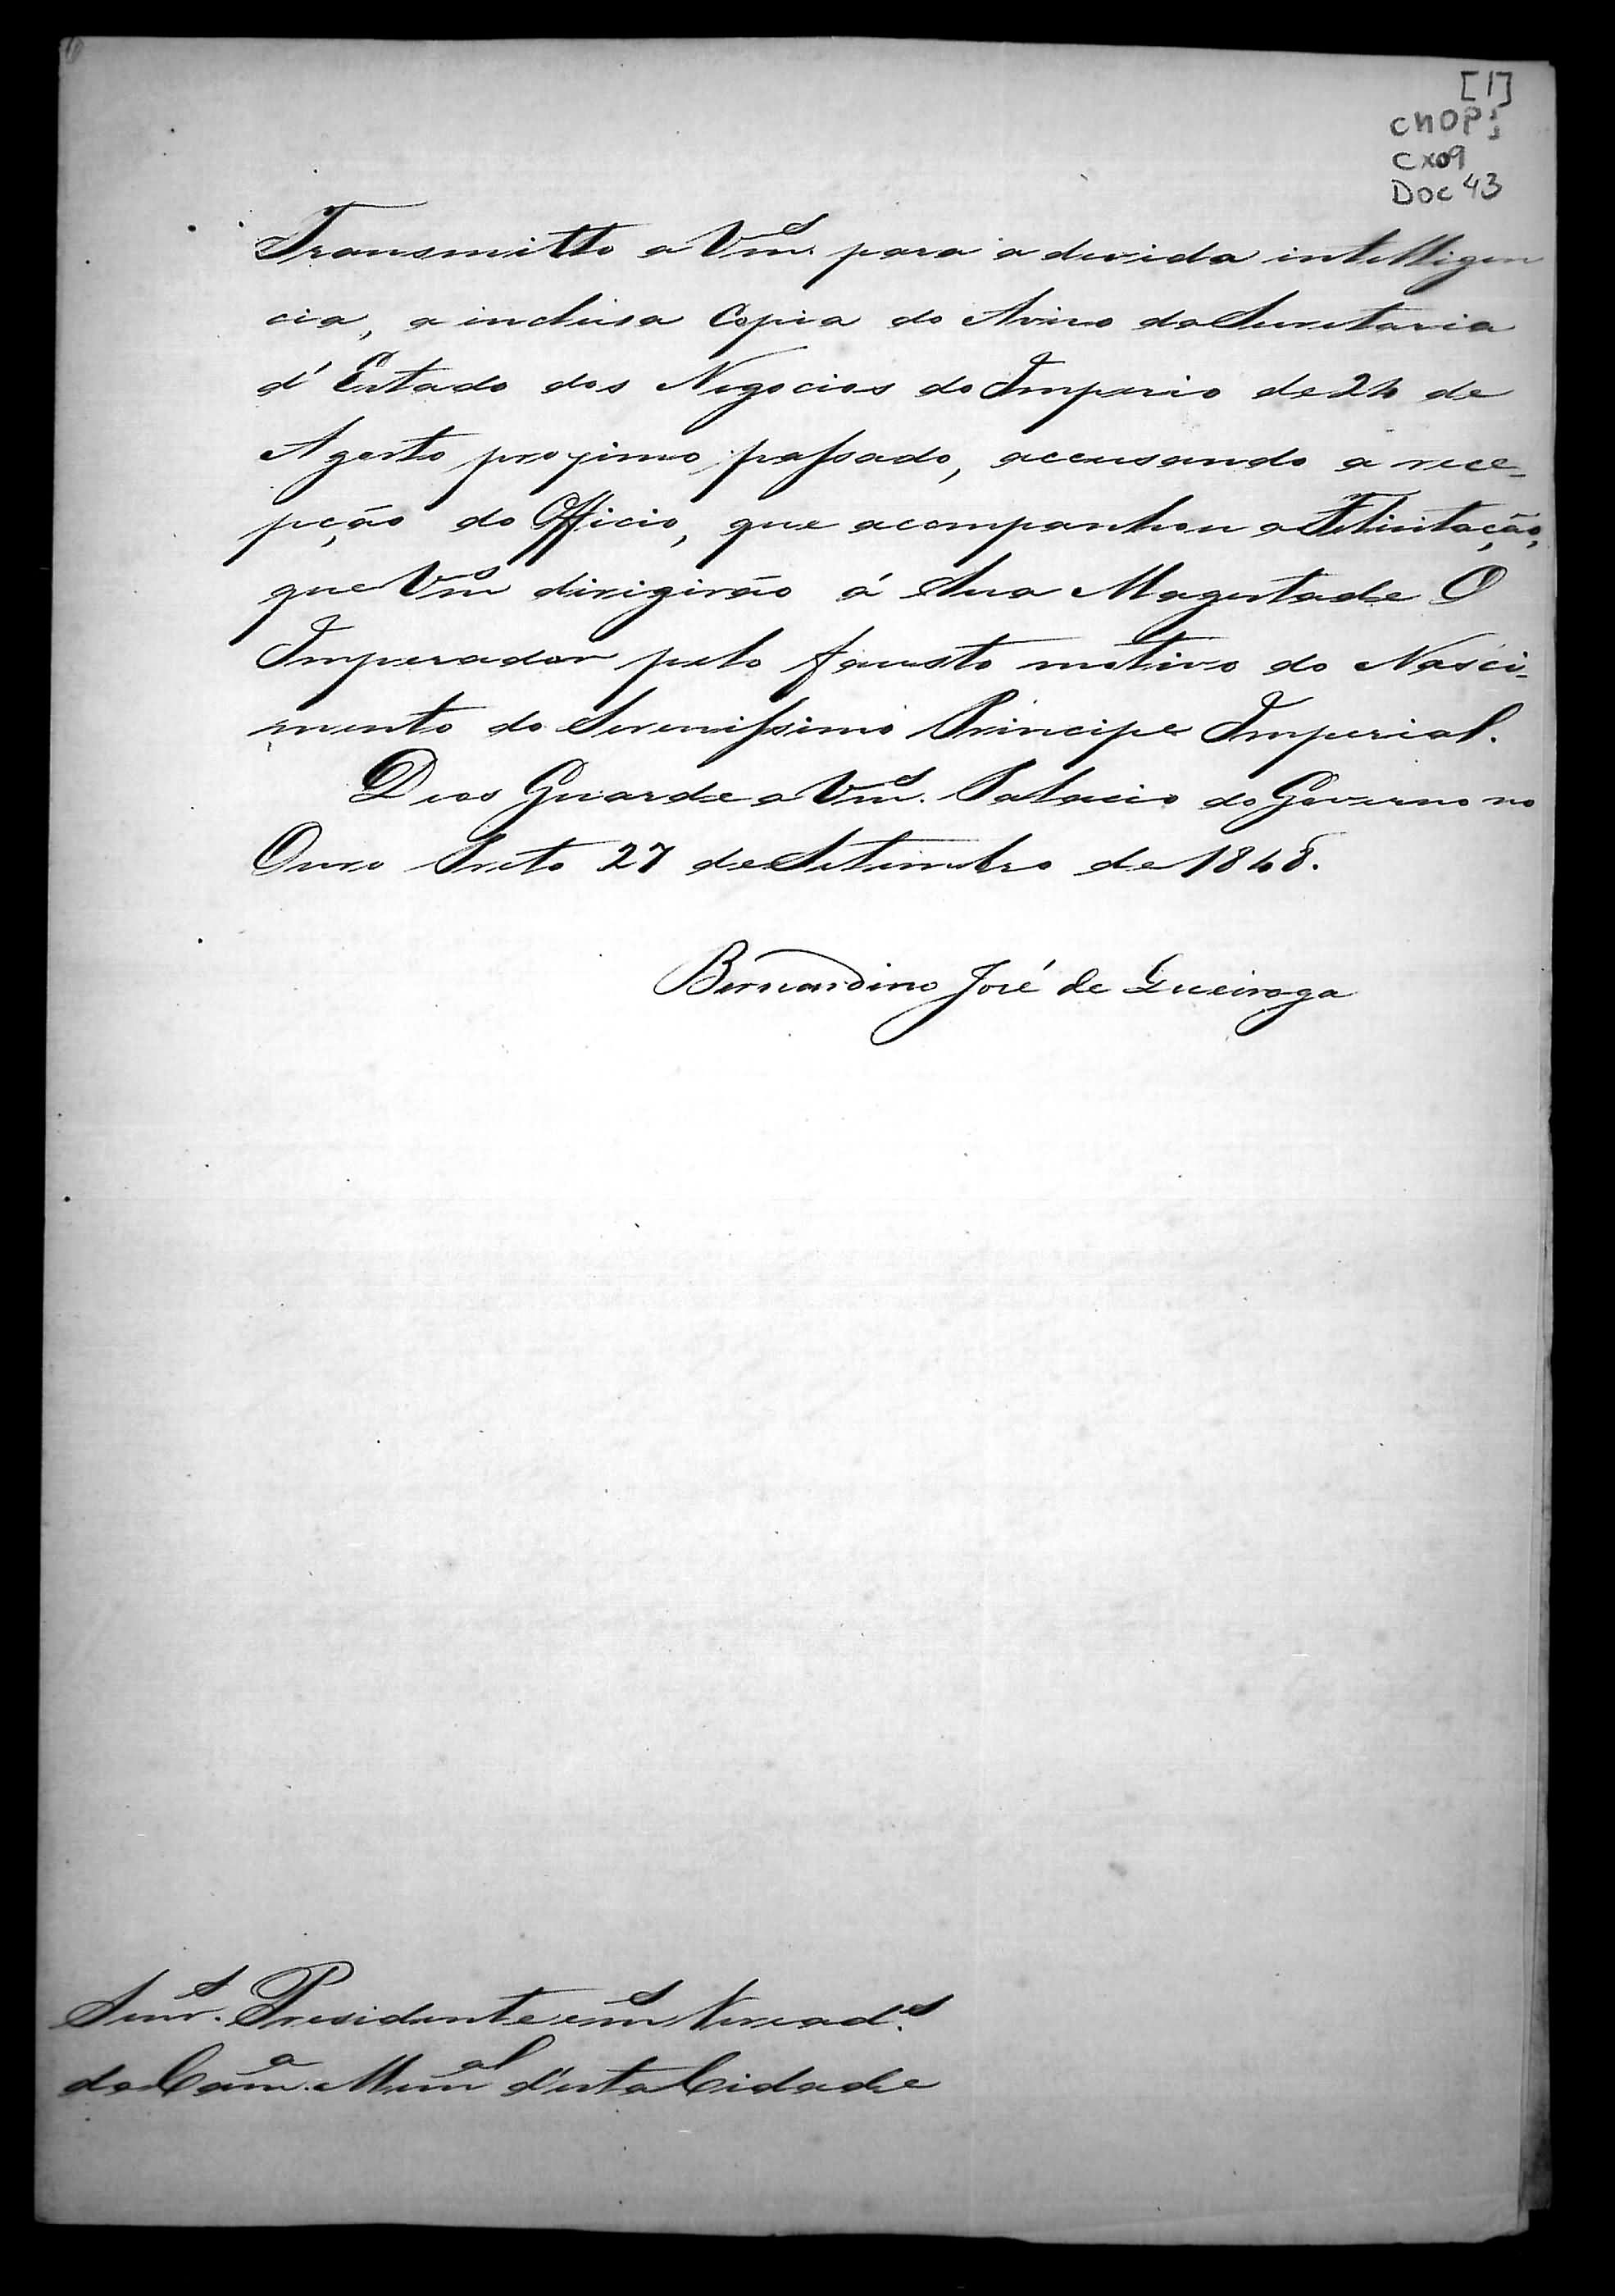 [1]
CMOP
CX09
DOC 43
Transmitto a Vm.ces para a devida intelligen
cia, a inclusa Copia do Aviso da Secretaria
d'Estado dos Negocios do Imperio de 24 de
Agosto proximo passado, accusando a rece-
pção do Officio, que acompanhou a Felicitação,
que Vm.ces dirigirão á Sua Magestade O
Imperador pelo fausto motivo do Nasci-
mento do Serenissimo Principe Imperial.
Deos Guarde a Vm.ces. Palacio do Governo no
Ouro Preto 27 de Setembro de 1848.
Bernardino José de Queiroga
Senr.s Presidente e mais Veread.s
da Cam.a Mun.al d'esta Cidade